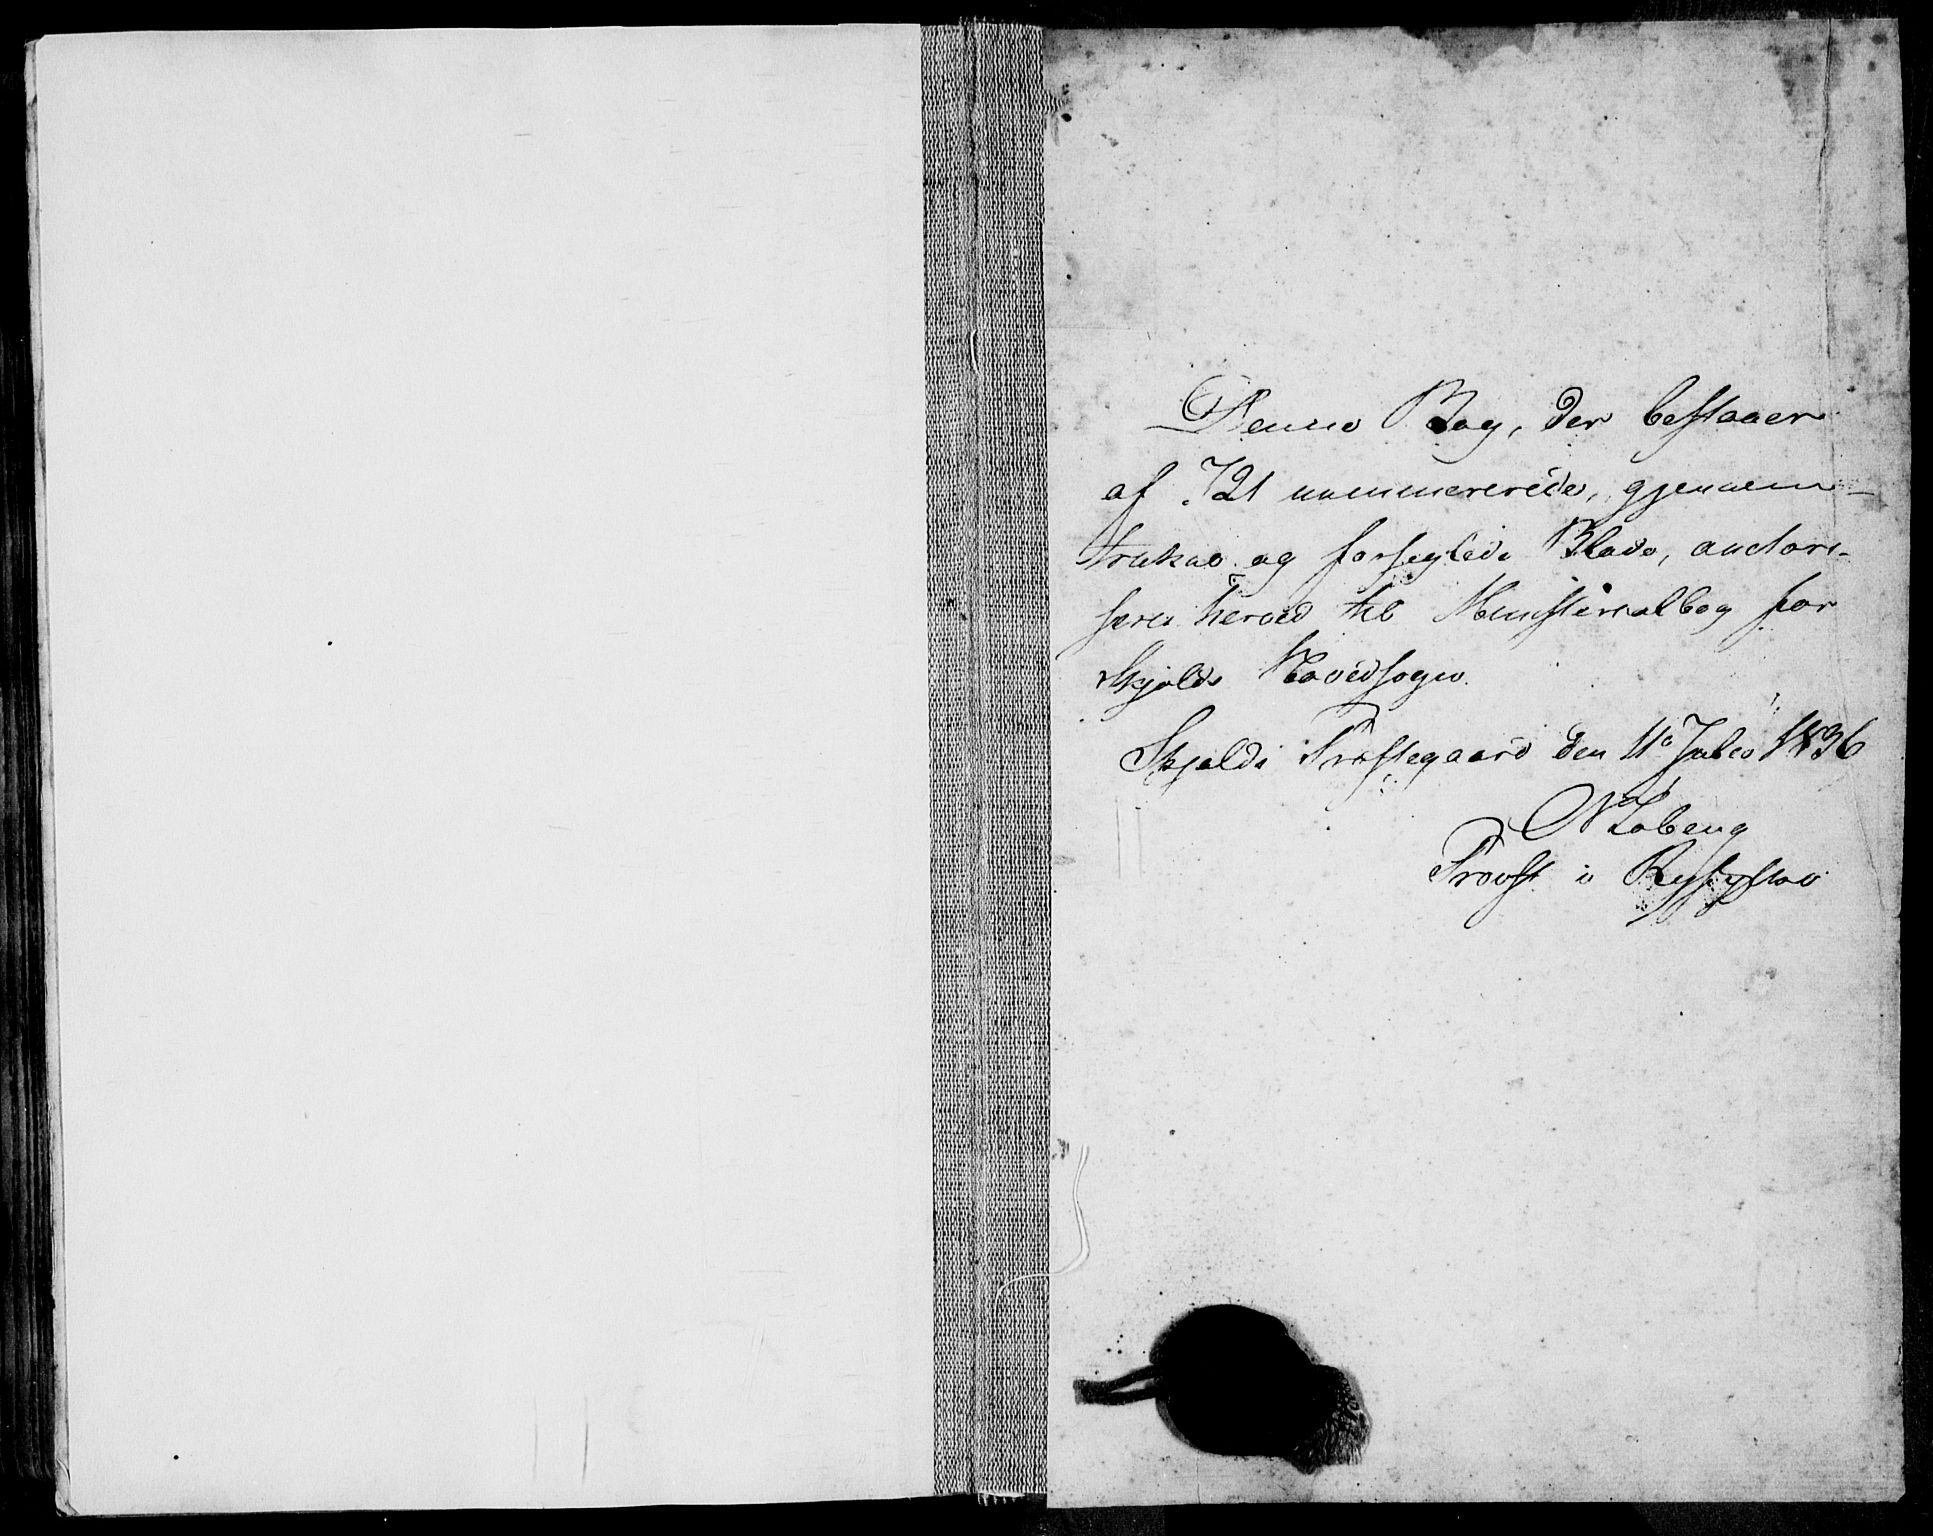 Denne Bog, der bestaaer
af 721 nummererede, gjennem-
trukne og forseglede Blade, auctori-
seres herved til Ministerialbog for
Skjolds Hovedsogn.
Skjolds Præstegaard den 11 Julio 1836
Provst i Ryfylke